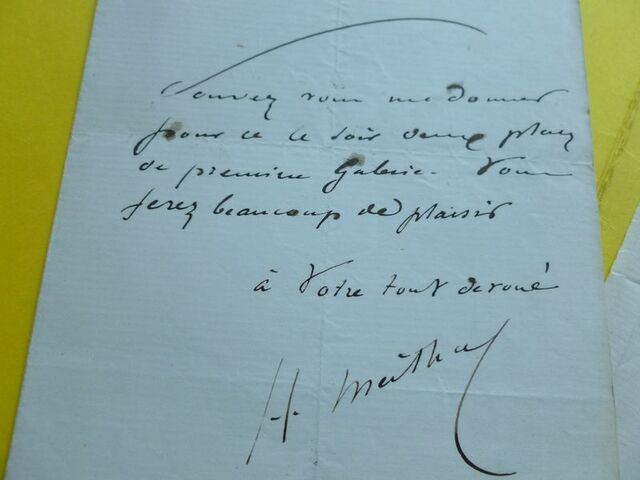 Pouvez vous me donner
pour ce le soir deux places
de première Galerie. Vous
ferez beaucoup de plaisir
à Votre tout dévoué
H. Meilhac